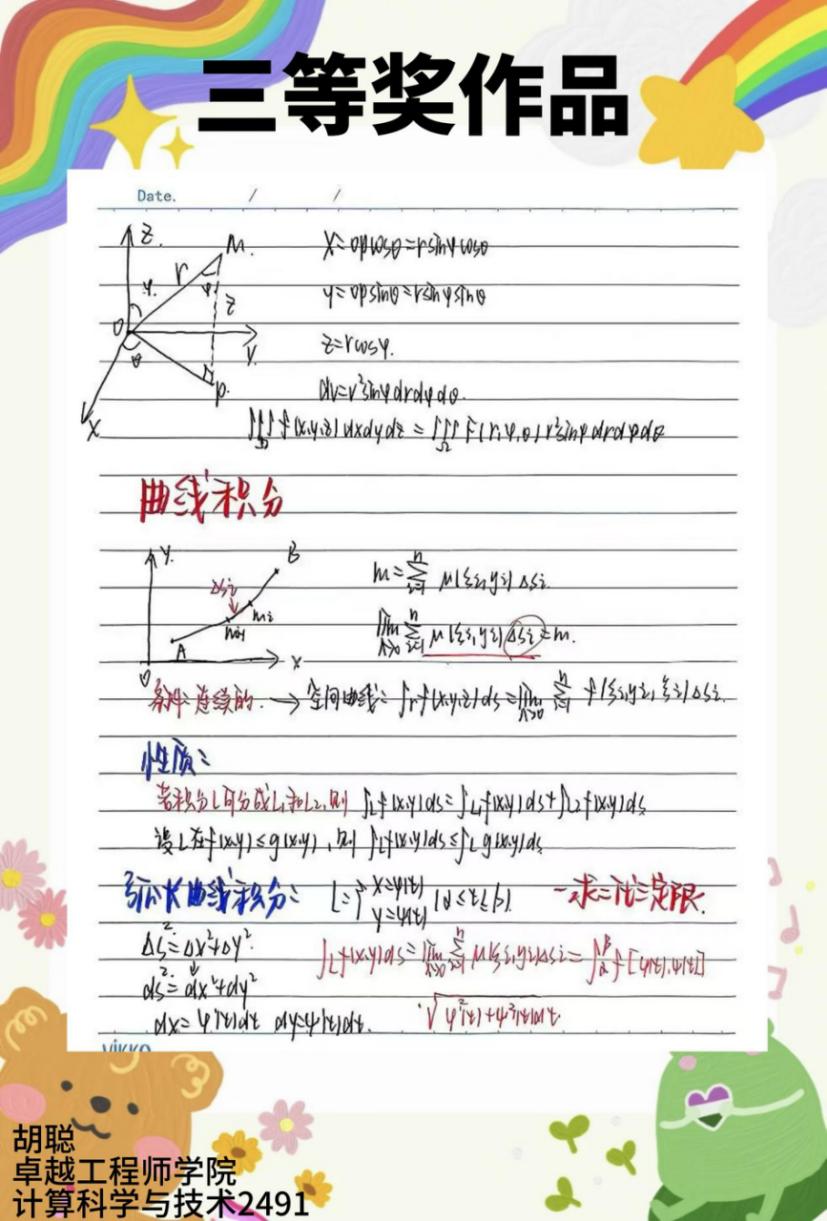 三等奖作品
Date. / /
Z M.
r φ
φ. z
O
θ y.
p.
x
x=opcosθ=rsinφcosθ
y=opsinθ=rsinφsinθ
z=rcosφ.
dv=r²sinφdrdφdθ.
∭Ω f(x,y,z)dxdydz=∭Ω F(r,φ,θ)r²sinφdrdφdθ
曲线积分
y. B
Δsi
Mi
Mi-1
A
O x
m=∑ⁿᵢ₌₁ μ(ξi,yi)Δsi.
lim λ→0 ∑ⁿᵢ₌₁ μ(ξi,yi)Δsi=m.
条件:连续的.→空间曲线:∫Γf(x,y,z)ds=lim λ→0 ∑ⁿᵢ₌₁ f(ξi,yi,ξi)Δsi.
性质:
若积分L可分成L₁和L₂,则 ∫L f(x,y)ds=∫L₁f(x,y)ds+∫L₂f(x,y)ds
设L在f(x,y)≤g(x,y),则∫Lf(x,y)ds≤∫L g(x,y)ds
曲线积分: L={x=φ(t) y=ψ(t) (α≤t≤β). 一求二代三定限.
Δs²=Δx²+Δy².
∫Lf(x,y)ds=lim λ→0 ∑ⁿᵢ₌₁ μ(ξi,yi)Δsi=∫αβ f[φ(t),ψ(t)]
ds²=dx²+dy²
dx=φ'(t)dt dy=ψ'(t)dt.
·√φ'²(t)+ψ'²(t)dt.
vikko
胡聪
卓越工程师学院
计算科学与技术2491